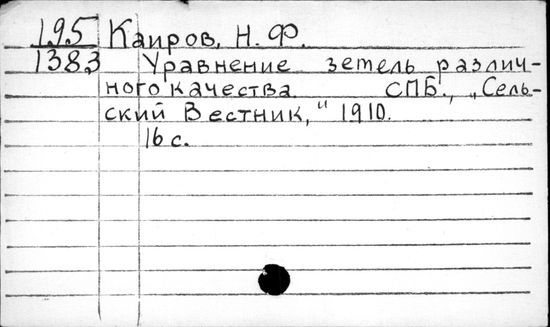 195 Каиров, Н. Ф.
1383 Уравнение земель различ-
ного качества СПБ., „Сель-
ский Вестник,“ 1910.
16 с.